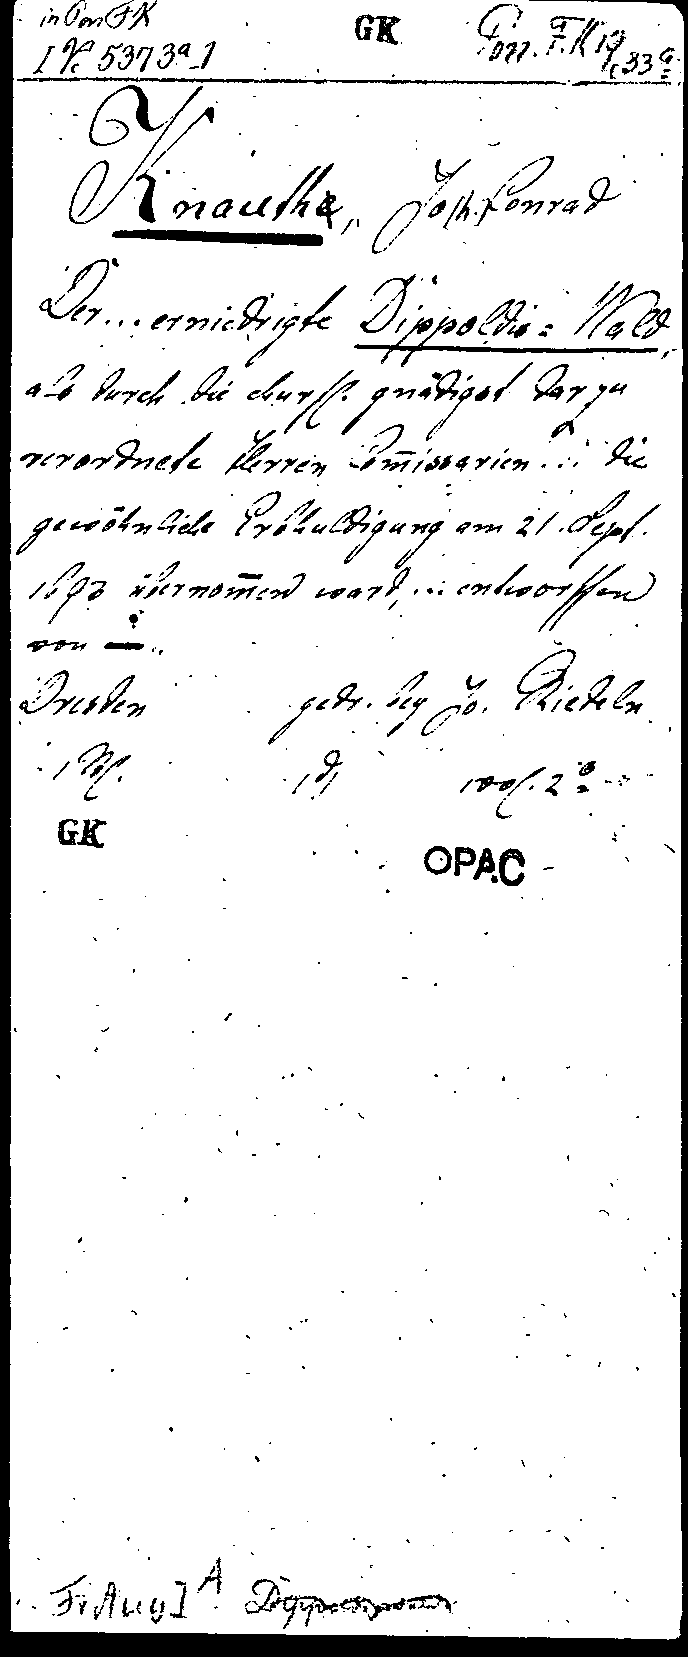 in Pon FK GK Pon. F. K 19
I Nc 5373a_1 c, 33a
Knauthe, Joh. Conrad
Der... erniedrigte Dippoldis= Wald,
als durch die churfl. gnädigst darzu
verordnete Herren Com̅issarien... die
gewöhnliche Erbhuldigung am 21. Sept.
1693 übernom̅en ward,... entworffen
von —..
Dresden gedr. bey Jo. Riedeln
2°
GK
OPAC
Fr. Aug I A